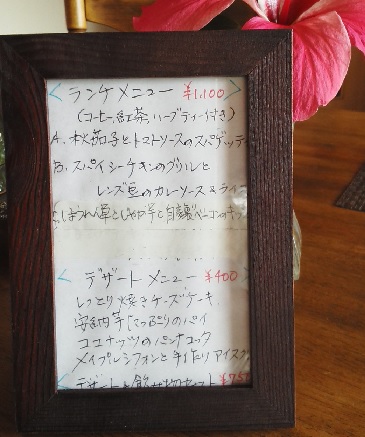 <ランチメニュー ¥1,100>
(コーヒー、紅茶、ハーブティー付き)
A. 秋茄子とトマトソースのスパゲッティ
B. スパイシーチキンのグリルと
レンズ豆のカレーソース&ライ
ほうれん草とじゃが芋と自家製ベーコンのキッ
<デザートメニュー ¥400>
しっとり焼きチーズケーキ
安納芋たっぷりのパイ
ココナッツのパンナコッタ
メイプルシフォンと手作りアイスク
<デザートと飲み物セット ¥750